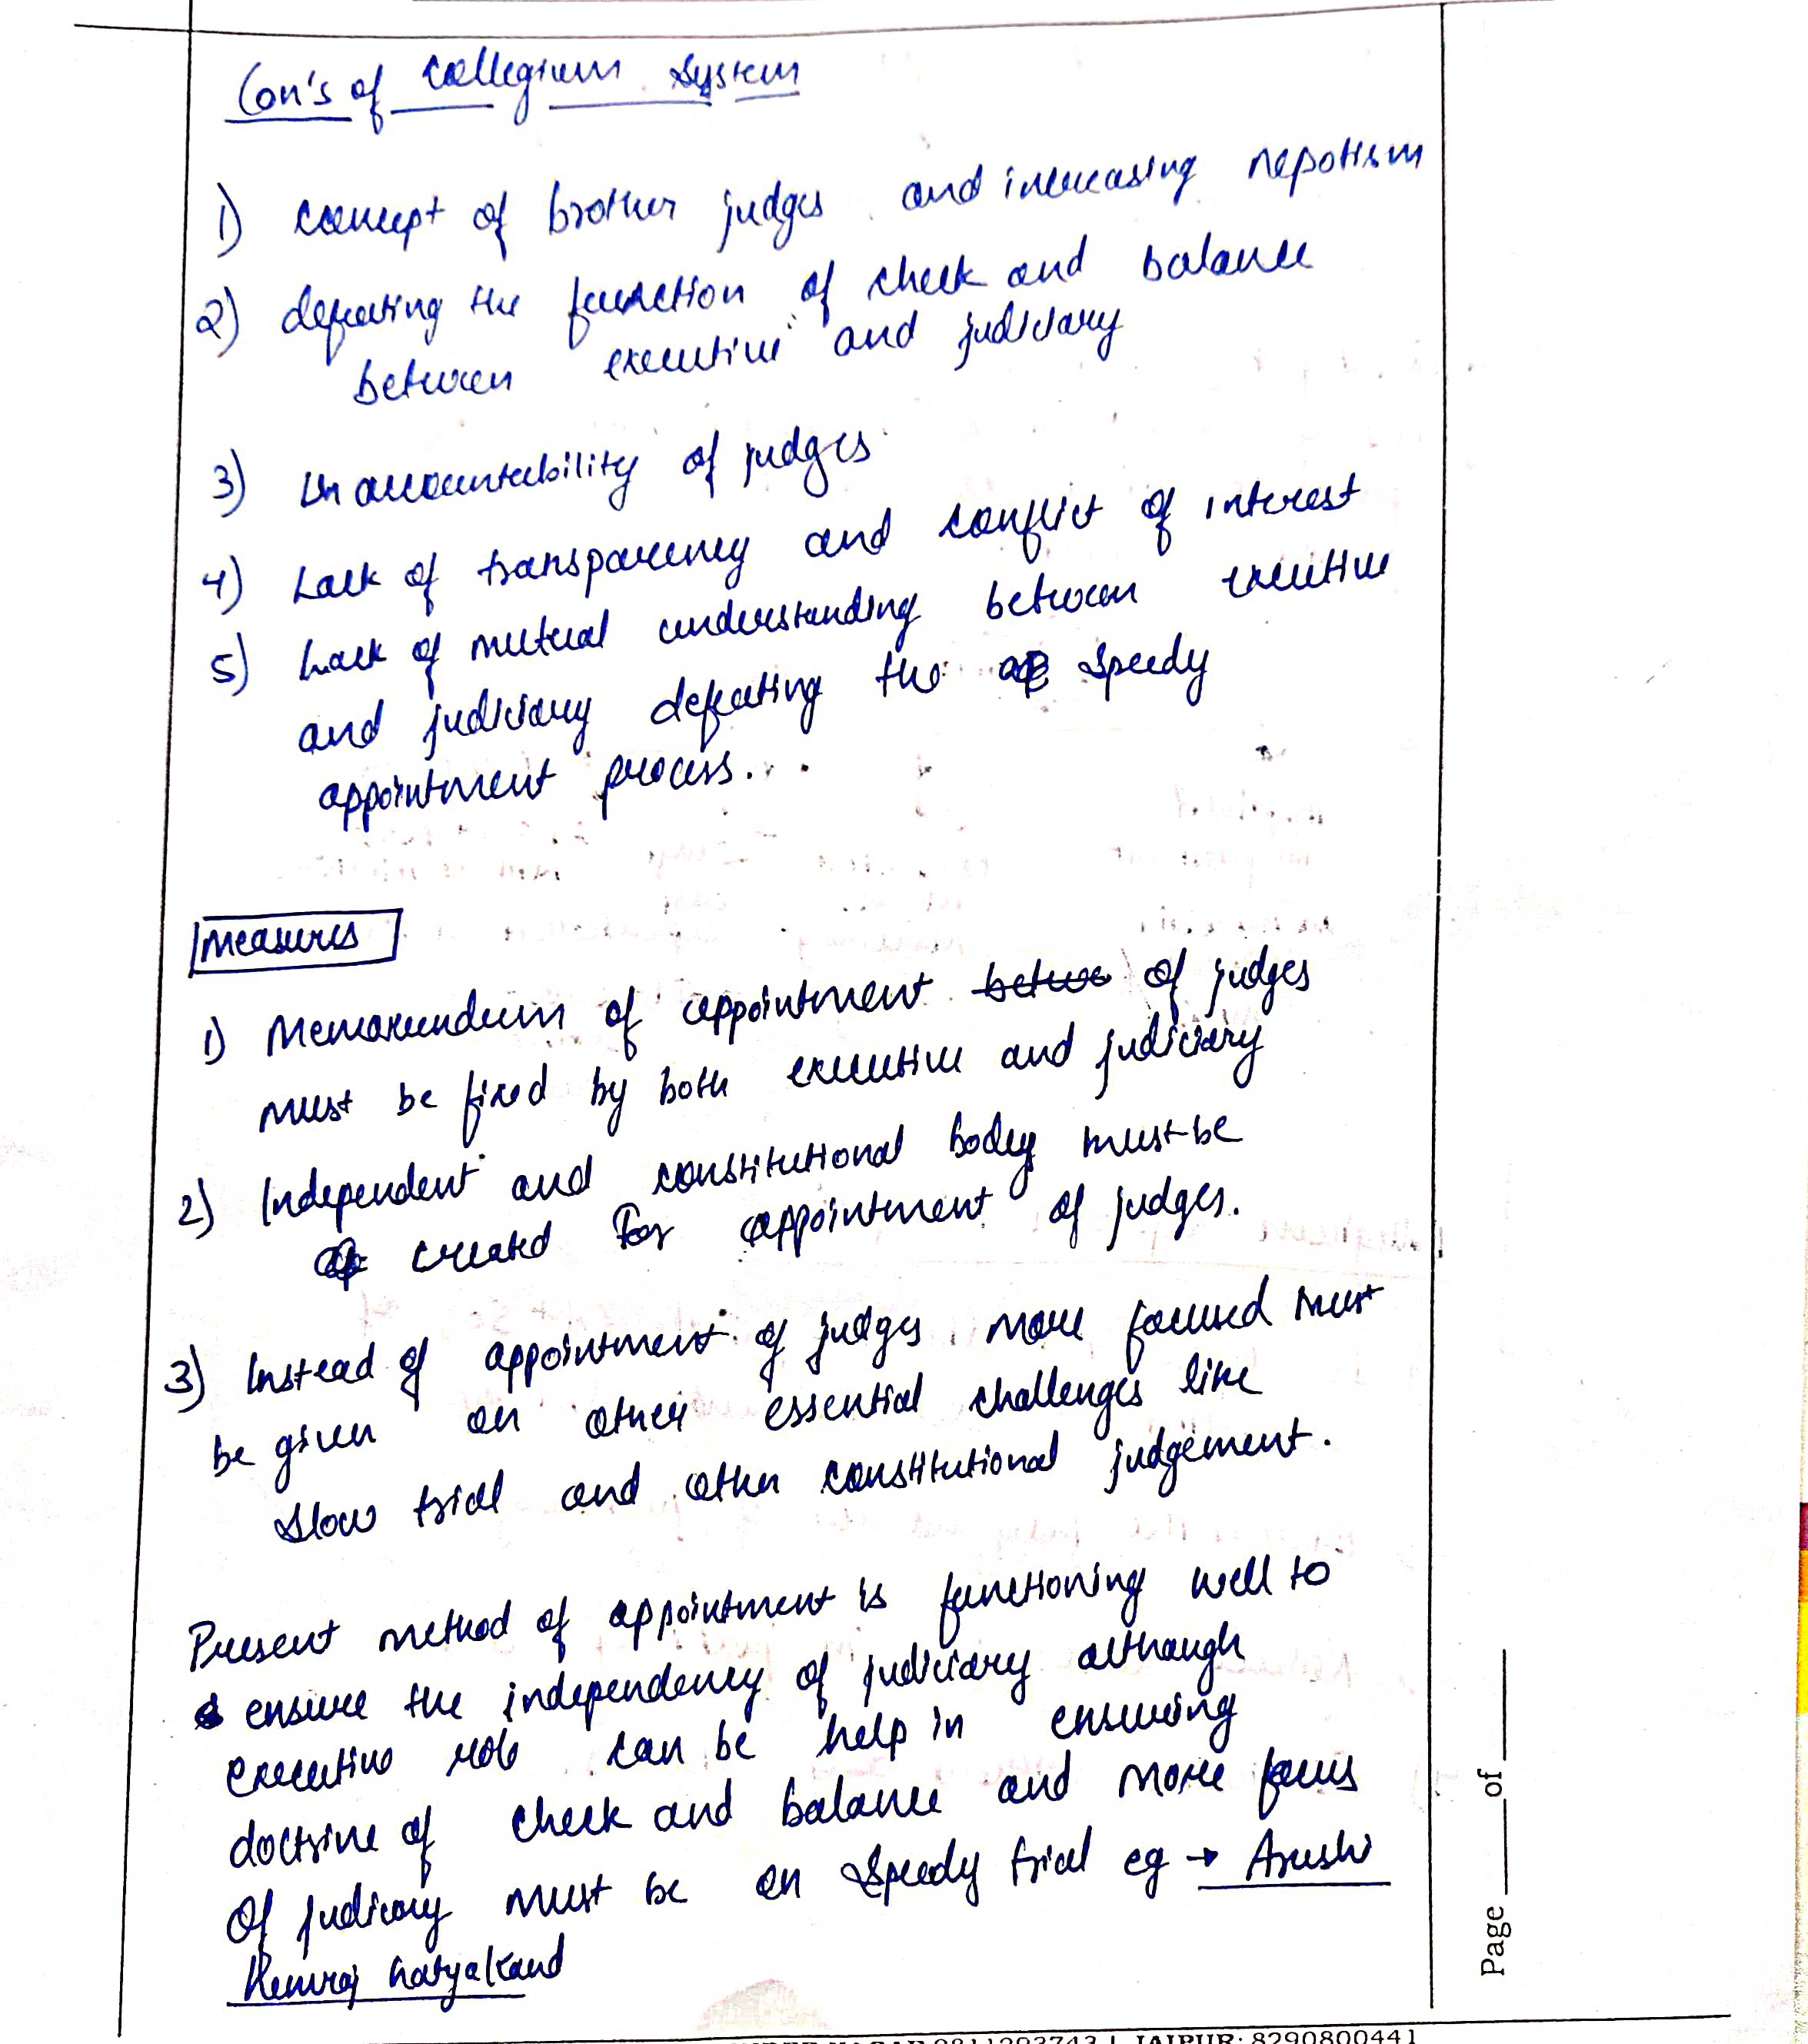 Con's of Collegium System
1) concept of brother judges and increasing nepotism
2) defeating the function of check and balance
between executive and judiciary
3) Unaccountability of judges
4) Lack of transparency and conflict of interest
5) Lack of mutual understanding between executive
and judiciary defeating the speedy
appointment process.
Measures
1) Memorundum of appointment betwe of judges
must be fixed by both executive and judiciary
2) Independent and constitutional body must be
created for appointment of judges.
3) Instead of appointment of judges more focused must
be given on other essential challenges like
slow trial and other constitutional judgement.
Present method of appointment is functioning well to
ensure the independency of judiciary although
executive role can be help in ensuring
doctrine of check and balance and more focus
of judicary must be on speedy trial eg → Arushi
Hemraj hatyakand
Page ____ of ____
JAIPUR: 8290800441